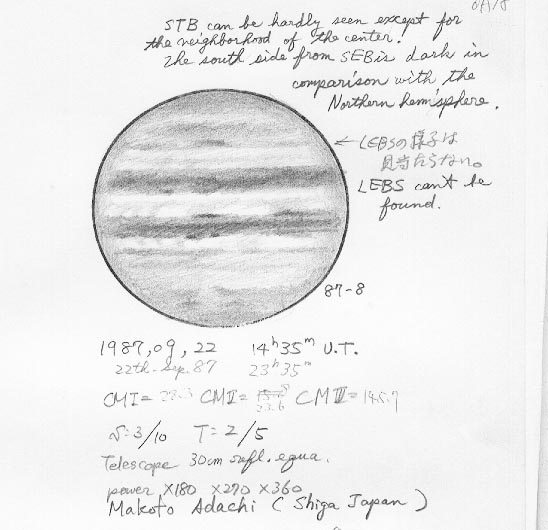 STB can be hardly seen except for
the neighborhood of the center.
The south side from SEB is dark in
comparison with the
Northern hemisphere.
← LEBSの様子は
見当たらない。
LEBS can't be
found.
87-8
1987, 09, 22 14h35m U.T.
22th. Sep. 87 23h35m
CMI= CMII= 23.6 CMIII=
S=3/10 T=2/5
Telescope 30cm refl. equa.
power ×180 ×270 ×360
Makoto Adachi (Shiga Japan)